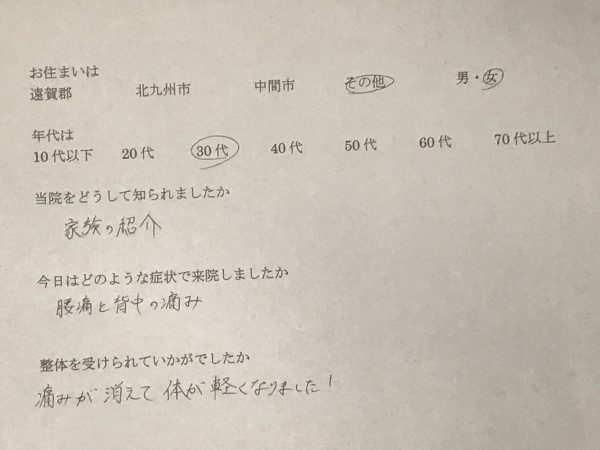 お住まいは
遠賀郡 北九州市 中間市 その他 男・女
年代は
10代以下 20代 30代 40代 50代 60代 70代以上
当院をどうして知られましたか
家族の紹介
今日はどのような症状で来院しましたか
腰痛と背中の痛み
整体を受けられていかがでしたか
痛みが消えて体が軽くなりました!